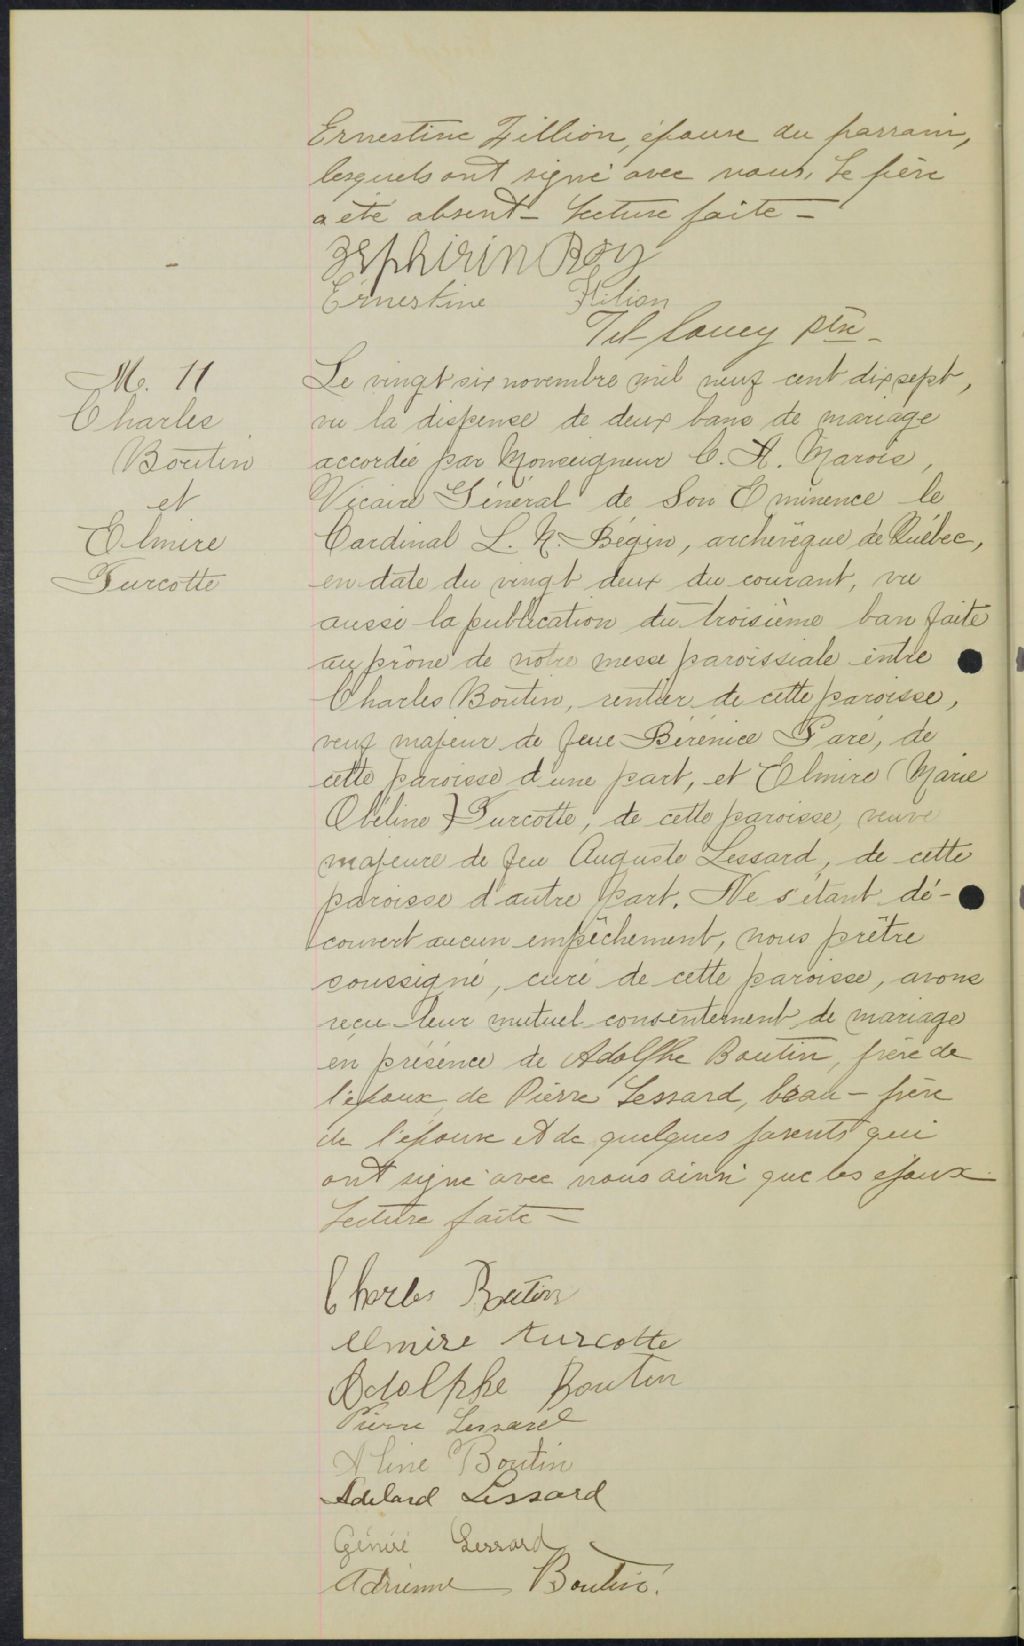 Ernestine Fillion, épouse du parrain,
lesquels ont signé avec nous, Le père
a été absent - Lecture faite -
Zephirin Roy
Ernestine Filion
Tel. Soucy ptre -
M. 11
Charles
Boutin
et
Elmire
Turcotte
Le vingt six novembre mil neuf cent dix sept,
vu la dispense de deux bans de mariage
accordée par Monseigneur C. A. Marois,
Vicaire Général de Son Eminence le
Cardinal L. N. Bégin, archevêque de Québec,
en date du vingt deux du courant, vu
aussi la publication du troisième ban faite
au prône de notre messe paroissiale entre
Charles Boutin, rentier de cette paroisse,
veuf majeur de feue Bérénice Paré, de
cette paroisse d'une part, et Elmire (Marie
Obéline) Turcotte, de cette paroisse, veuve
majeure de feu Auguste Lessard, de cette
paroisse d'autre part. Ne s'étant dé-
couvert aucun empêchement, nous prêtre
soussigné, curé de cette paroisse, avons
reçu leur mutuel consentement de mariage
en présence de Adolphe Boutin, frère de
l'époux, de Pierre Lessard, beau-frère
de l'épouse et de quelques parents qui
ont signé avec nous ainsi que les époux
Lecture faite -
Charles Boutin
Elmire turcotte
Adolphe Boutin
Pierre Lessard
Aline Boutin
Adelard Lessard
Lessard
Adrienne Boutin.